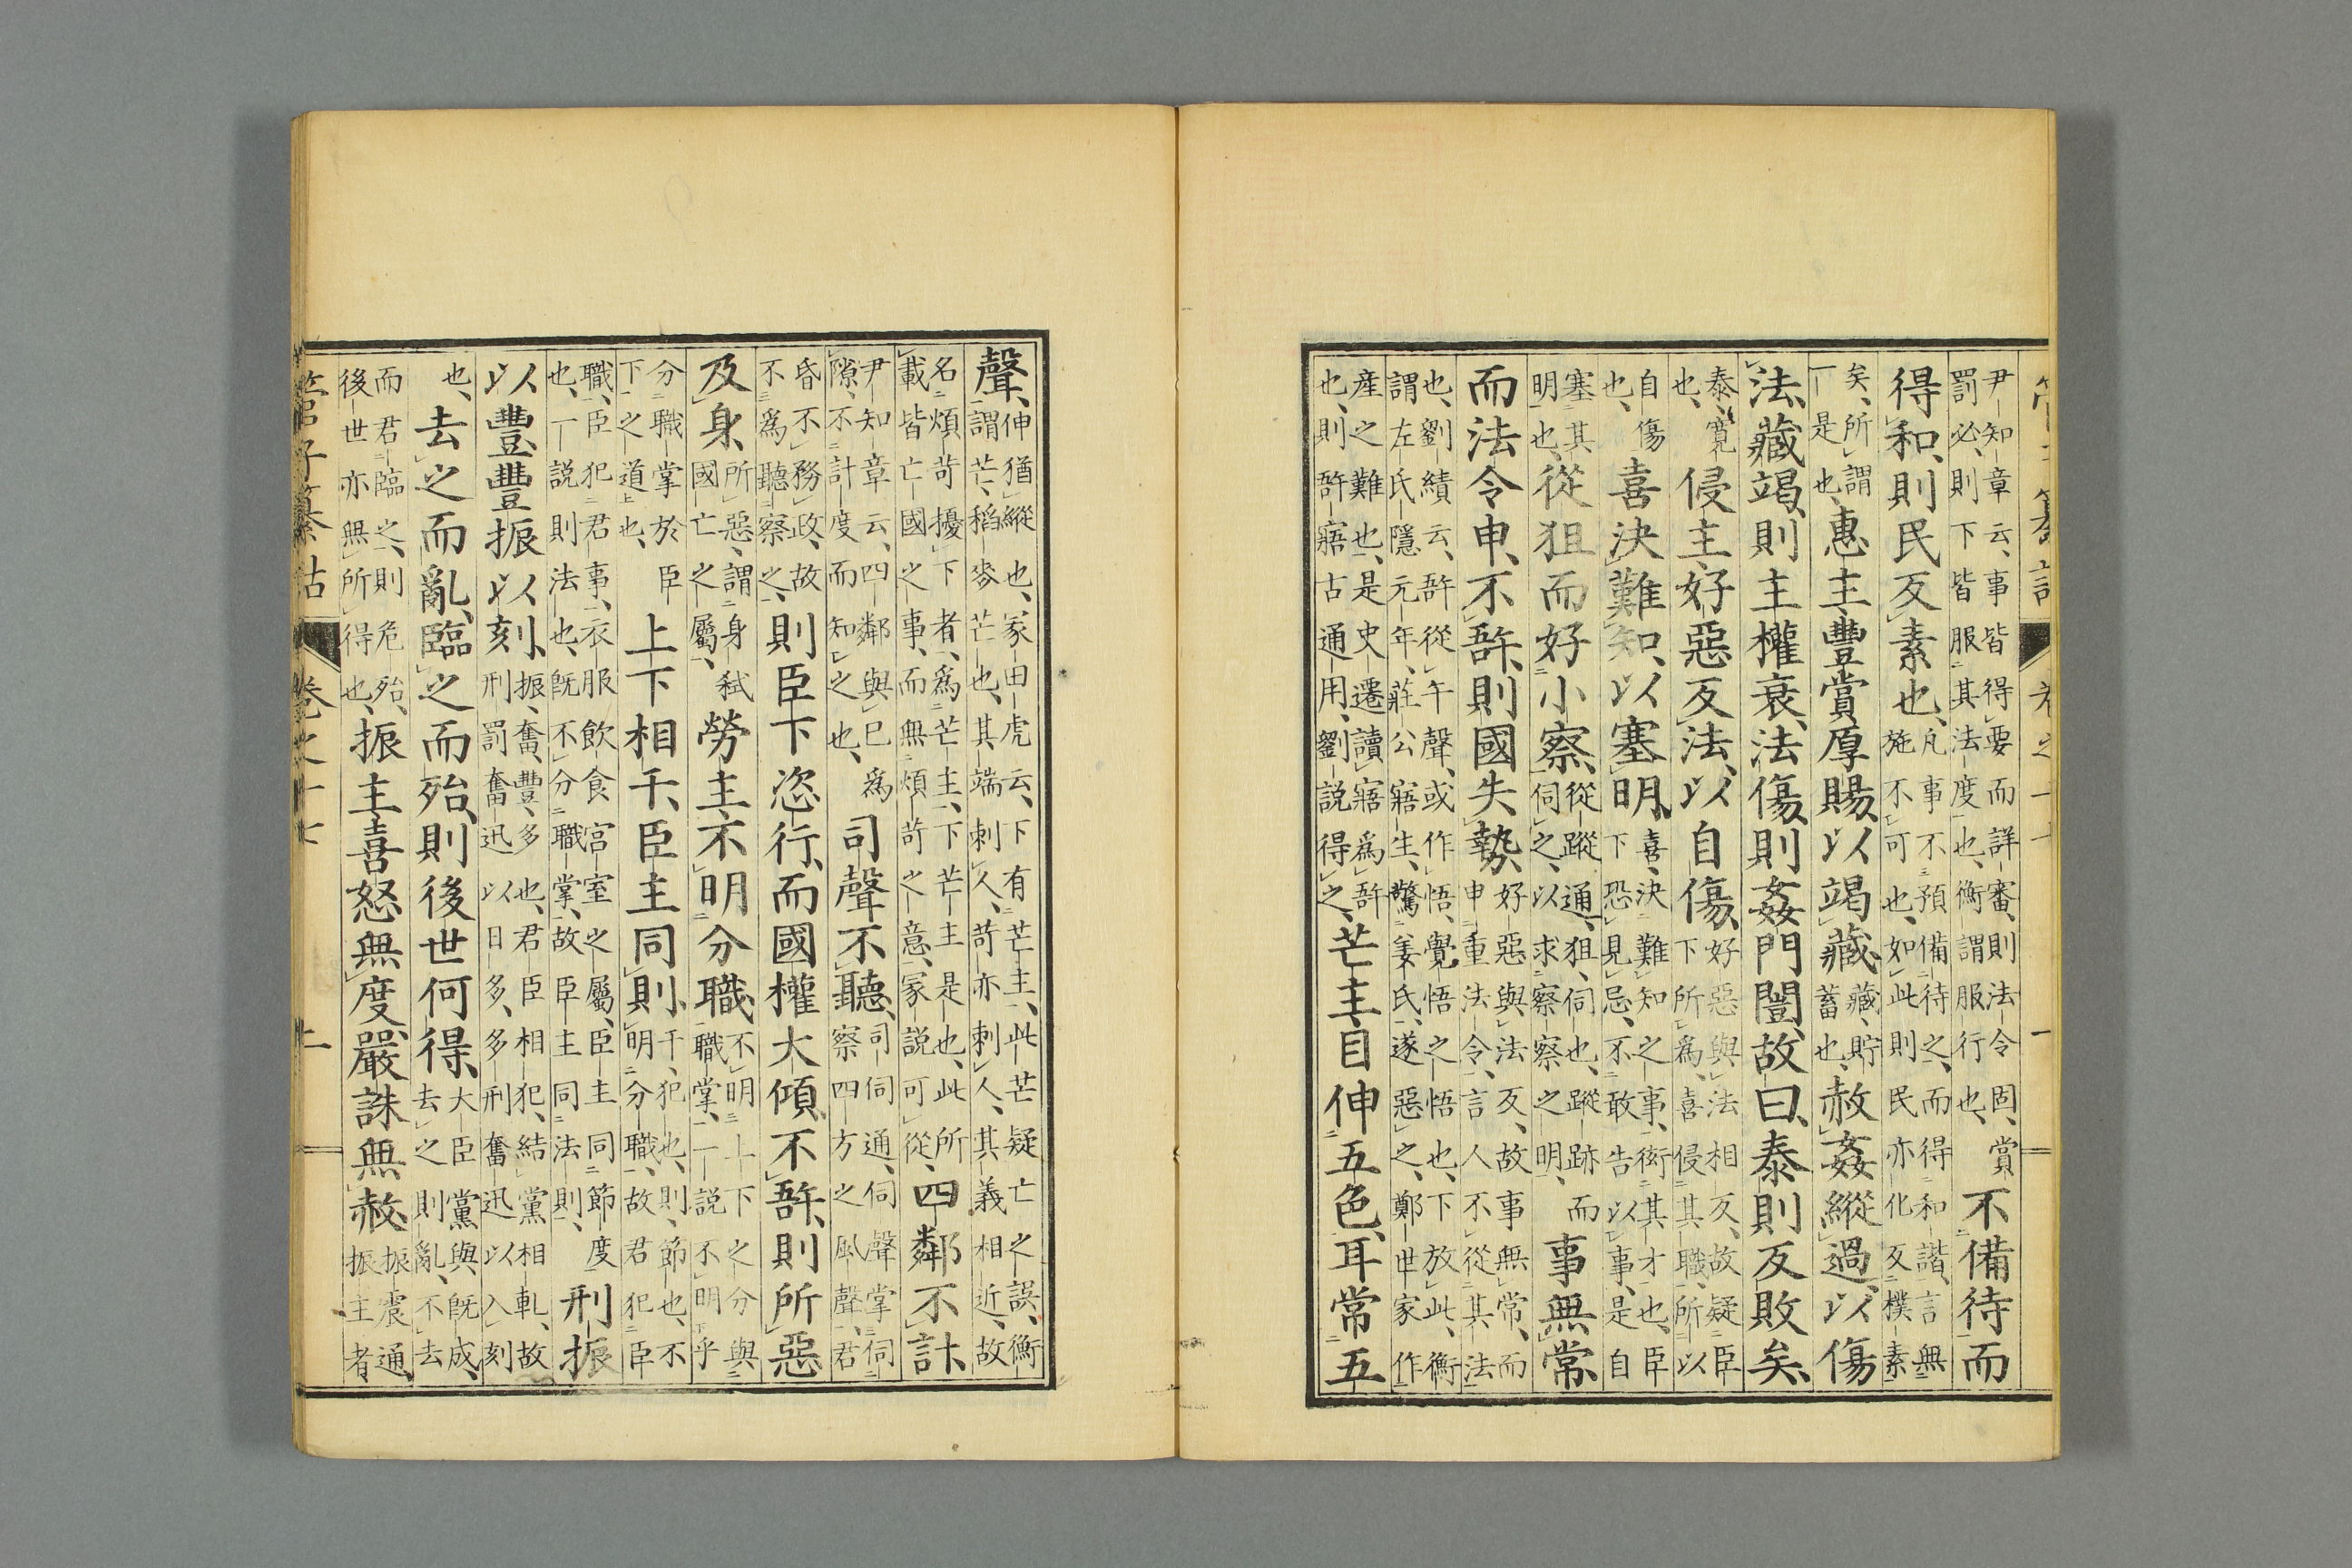 尹知章云、事皆得要而詳審、則法令固、賞
罰必、則下皆服其法度也、衡謂服行也、
不備待而
得和、則民反素也、
凡事不預備待之、而得和諧、言無
施不可也、如此則民亦化反樸素
矣、所謂
一是也、
惠主豐賞厚賜、以竭藏、
藏、貯
蓄也、
赦姦縱過、以傷
法、藏竭、則主權衰、法傷、則姦門闓、故曰、泰則反敗矣、
泰、寬
也、
侵主、好惡反法、以自傷、
好惡與法相反、故疑臣
下所爲、喜侵其職、所以
自傷
也、
喜決難知、以塞明、
喜決難知之事、衒其才也、臣
下恐見忌、不敢告以事、是自
塞其
明也、
從狙而好小察、
從蹤通、狙、伺也、蹤跡而
伺之、以求察察之明、
事無常、
而法令申、不䛩、則國失勢、
好惡與法反、故事無常、而
申重法令、言人不從其法
也、劉績云、䛩從午聲、或作悟、覺悟之悟也、下放此、衡
謂左氏隱元年、莊公寤生、驚姜氏、遂惡之、鄭世家作
産之難也、是史遷讀寤爲䛩
也、則䛩寤古通用、劉説得之、
芒主、目伸五色、耳常五
聲、
伸猶縱也、冢田虎云、下有芒主、此芒疑亡之誤、衡
謂芒、稻麥芒也、其端刺人、苛亦刺人、其義相近、故
名煩苛擾下者、爲芒主、下芒主是也、此所
載皆亡國之事、而無煩苛之意、冢説可從、
四鄰不計、
尹知章云、四鄰與己爲
隙、不計度而知之也、
司聲不聽、
司伺通、伺聲掌伺
察四方之風聲、君
昏不務政、故
不爲聽察之、
則臣下恣行、而國權大傾、不䛩、則所惡
及身、
所惡、謂身弑
國亡之屬、
勞主、不明分職、
不明上下之分與
職掌、一説不明乎
分職掌於臣
下之道也、
上下相干、臣主同則、
干、犯也、則、節也、不
明分職、故君犯臣
職、臣犯君事、衣服飲食宮室之屬、臣主同節度
也、一説則法也、旣不分職掌、故臣主同法則、
刑振
以豐、豐振以刻、
振、奮、豐、多也、君臣相犯、結黨相軋、故
刑罰奮迅以日多、多刑奮迅以入刻
也、
去之而亂、臨之而殆、則後世何得、
大臣黨與旣成、
去之則亂、不去
而君臨之、則危殆、
後世亦無所得也、
振主、喜怒無度、嚴誅無赦、
振震通、
振主者
管子纂詁
卷之十七